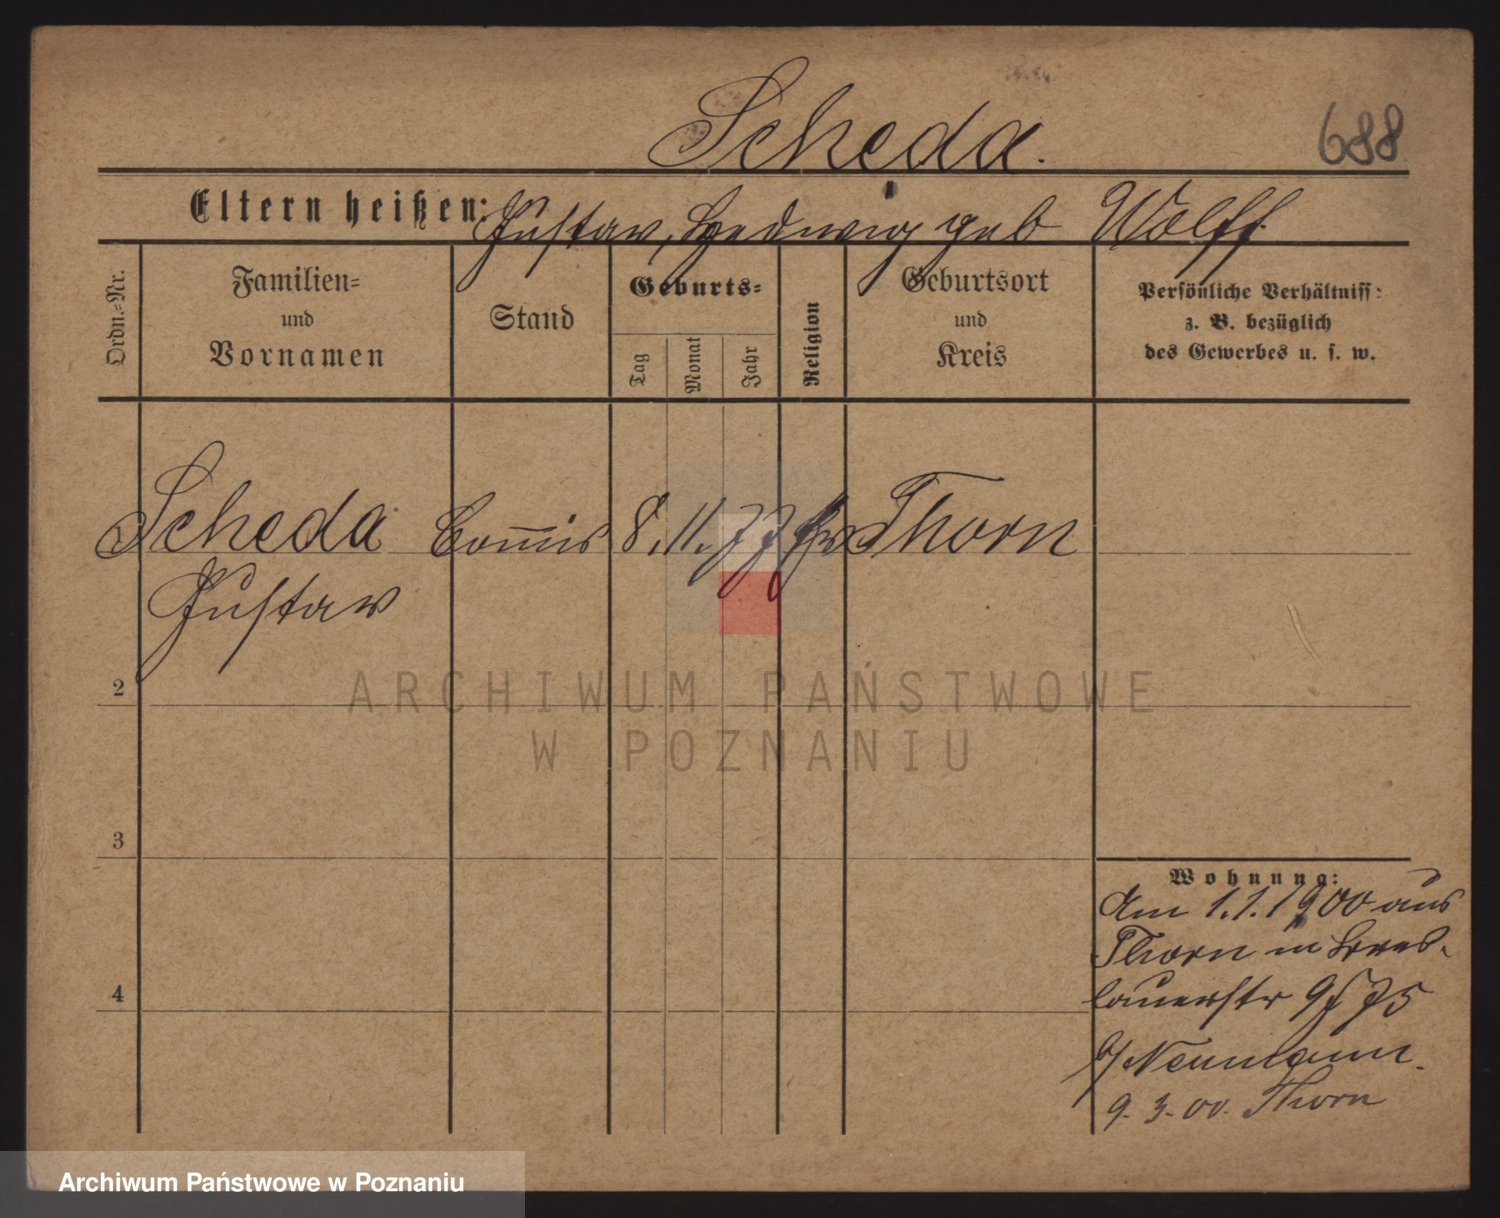 Scheda.
688
Eltern heißen: Gustav, Hedwig geb Wolff.
Ordn.=Nr.
Familien= und Vornamen
Stand
Geburts=
Tag
Monat
Jahr
Religion
Geburtsort und Kreis
Persönliche Verhältniss:
z. B. bezüglich
des Gewerbes u. s. w.
Scheda Com̅is 8. 11. 77 Thorn
Gustav
2
3
4
ARCHIWUM PAŃSTWOWE
W POZNANIU
Wohnung:
Am 1.1.1900 aus
Thorn in Bres-
lauerstr 9 75
b/ Neumann.
9. 3. 00. Thorn
Archiwum Państwowe w Poznaniu